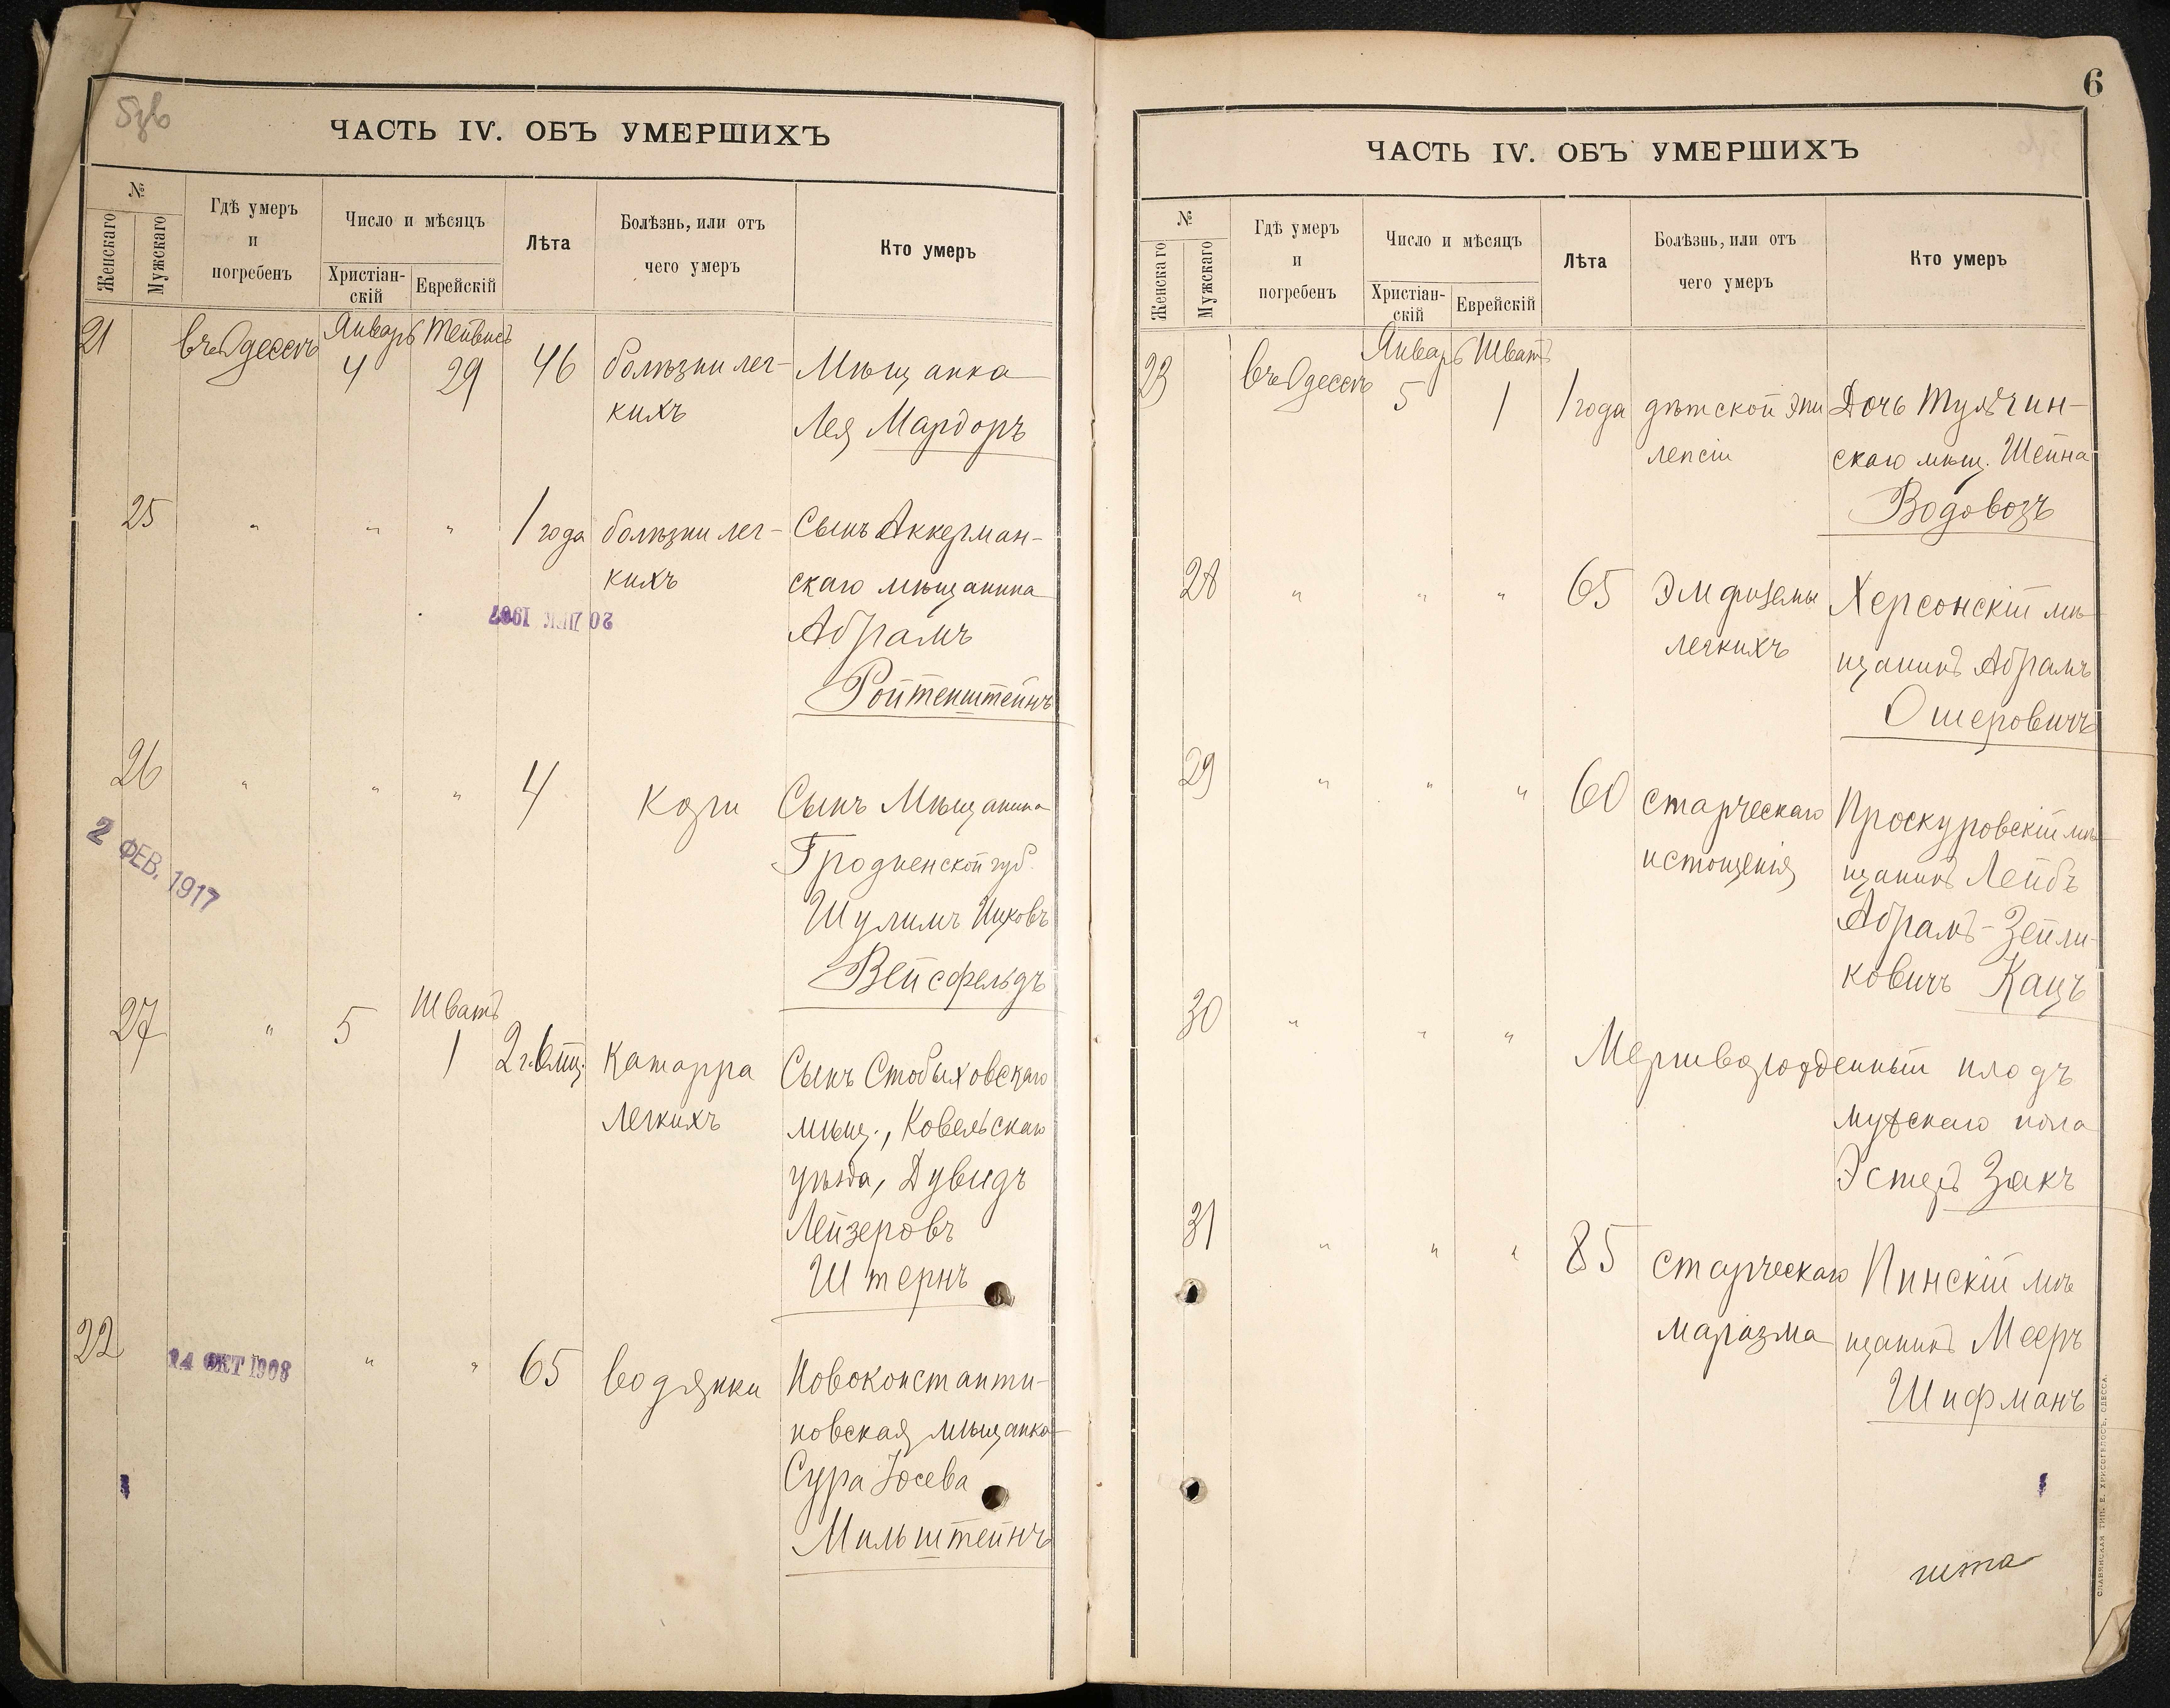 ЧАСТЬ IV. ОБЪ УМЕРШИХЪ
№
Женскаго
Мужскаго
Гдѣ умеръ
и
погребенъ
Число и мѣсяцъ
Христіан-
скій
Еврейскій
Лѣта
Болѣзнь, или отъ
чего умеръ
Кто умеръ
21 въ Одессѣ Январь 4 Тейвисъ 29 46 болѣзни лег- Мѣщанка
кихъ Лея Мардоръ
25 " " " 1 года болѣзни лег- Сынъ Аккерман-
кихъ скаго мѣщанина
20 ДЕК 1907
Абрамъ
Ройтенштейнъ
26 " " " 4 Кори Сынъ Мѣщанина
2 ФЕВ. 1917
Гродненской губ.
Шулимъ Ицковъ
Вейсфельдъ
27 " 5 Шватъ 1 2 г. 6 мц. Катарра Сынъ Стобыховскаго
Легкихъ мѣщ., Ковельскаго
уѣзда, Дувидъ
Лейзеровъ
Штернъ
22 14 ОКТ 1908 " " 65 водянки Новоконстанти-
новская мѣщанка
Сура Іосева
Мильштейнъ
6
ЧАСТЬ IV. ОБЪ УМЕРШИХЪ
№
Женскаго
Мужскаго
Гдѣ умеръ
и
погребенъ
Число и мѣсяцъ
Христіан-
скій
Еврейскій
Лѣта
Болѣзнь, или отъ
чего умеръ
Кто умеръ
23 въ Одессѣ Январь 5 Шватъ 1 1 года дѣтской эпи Дочь Тульчин-
лепсіи скаго мѣщ. Шейна
Водовозъ
28 " " " 65 Эмфиземы Херсонскій мѣ-
легкихъ щанинъ Абрамъ
Ошеровичъ
29 " " " 60 старческаго Проскуровскій мѣ-
истощенія щанинъ Лейбъ
Абрамъ-Зейли-
ковичъ Кацъ
30 " " " Мертворожденный плодъ
мужскаго пола
Эстеръ Закъ
31 " " " 85 старческаго Пинскій мѣ
маразма щанинъ Мееръ
Шифманъ
СЛАВЯНСКАЯ ТИП. Е. ХРИСОГЕЛОСЪ, ОДЕССА.